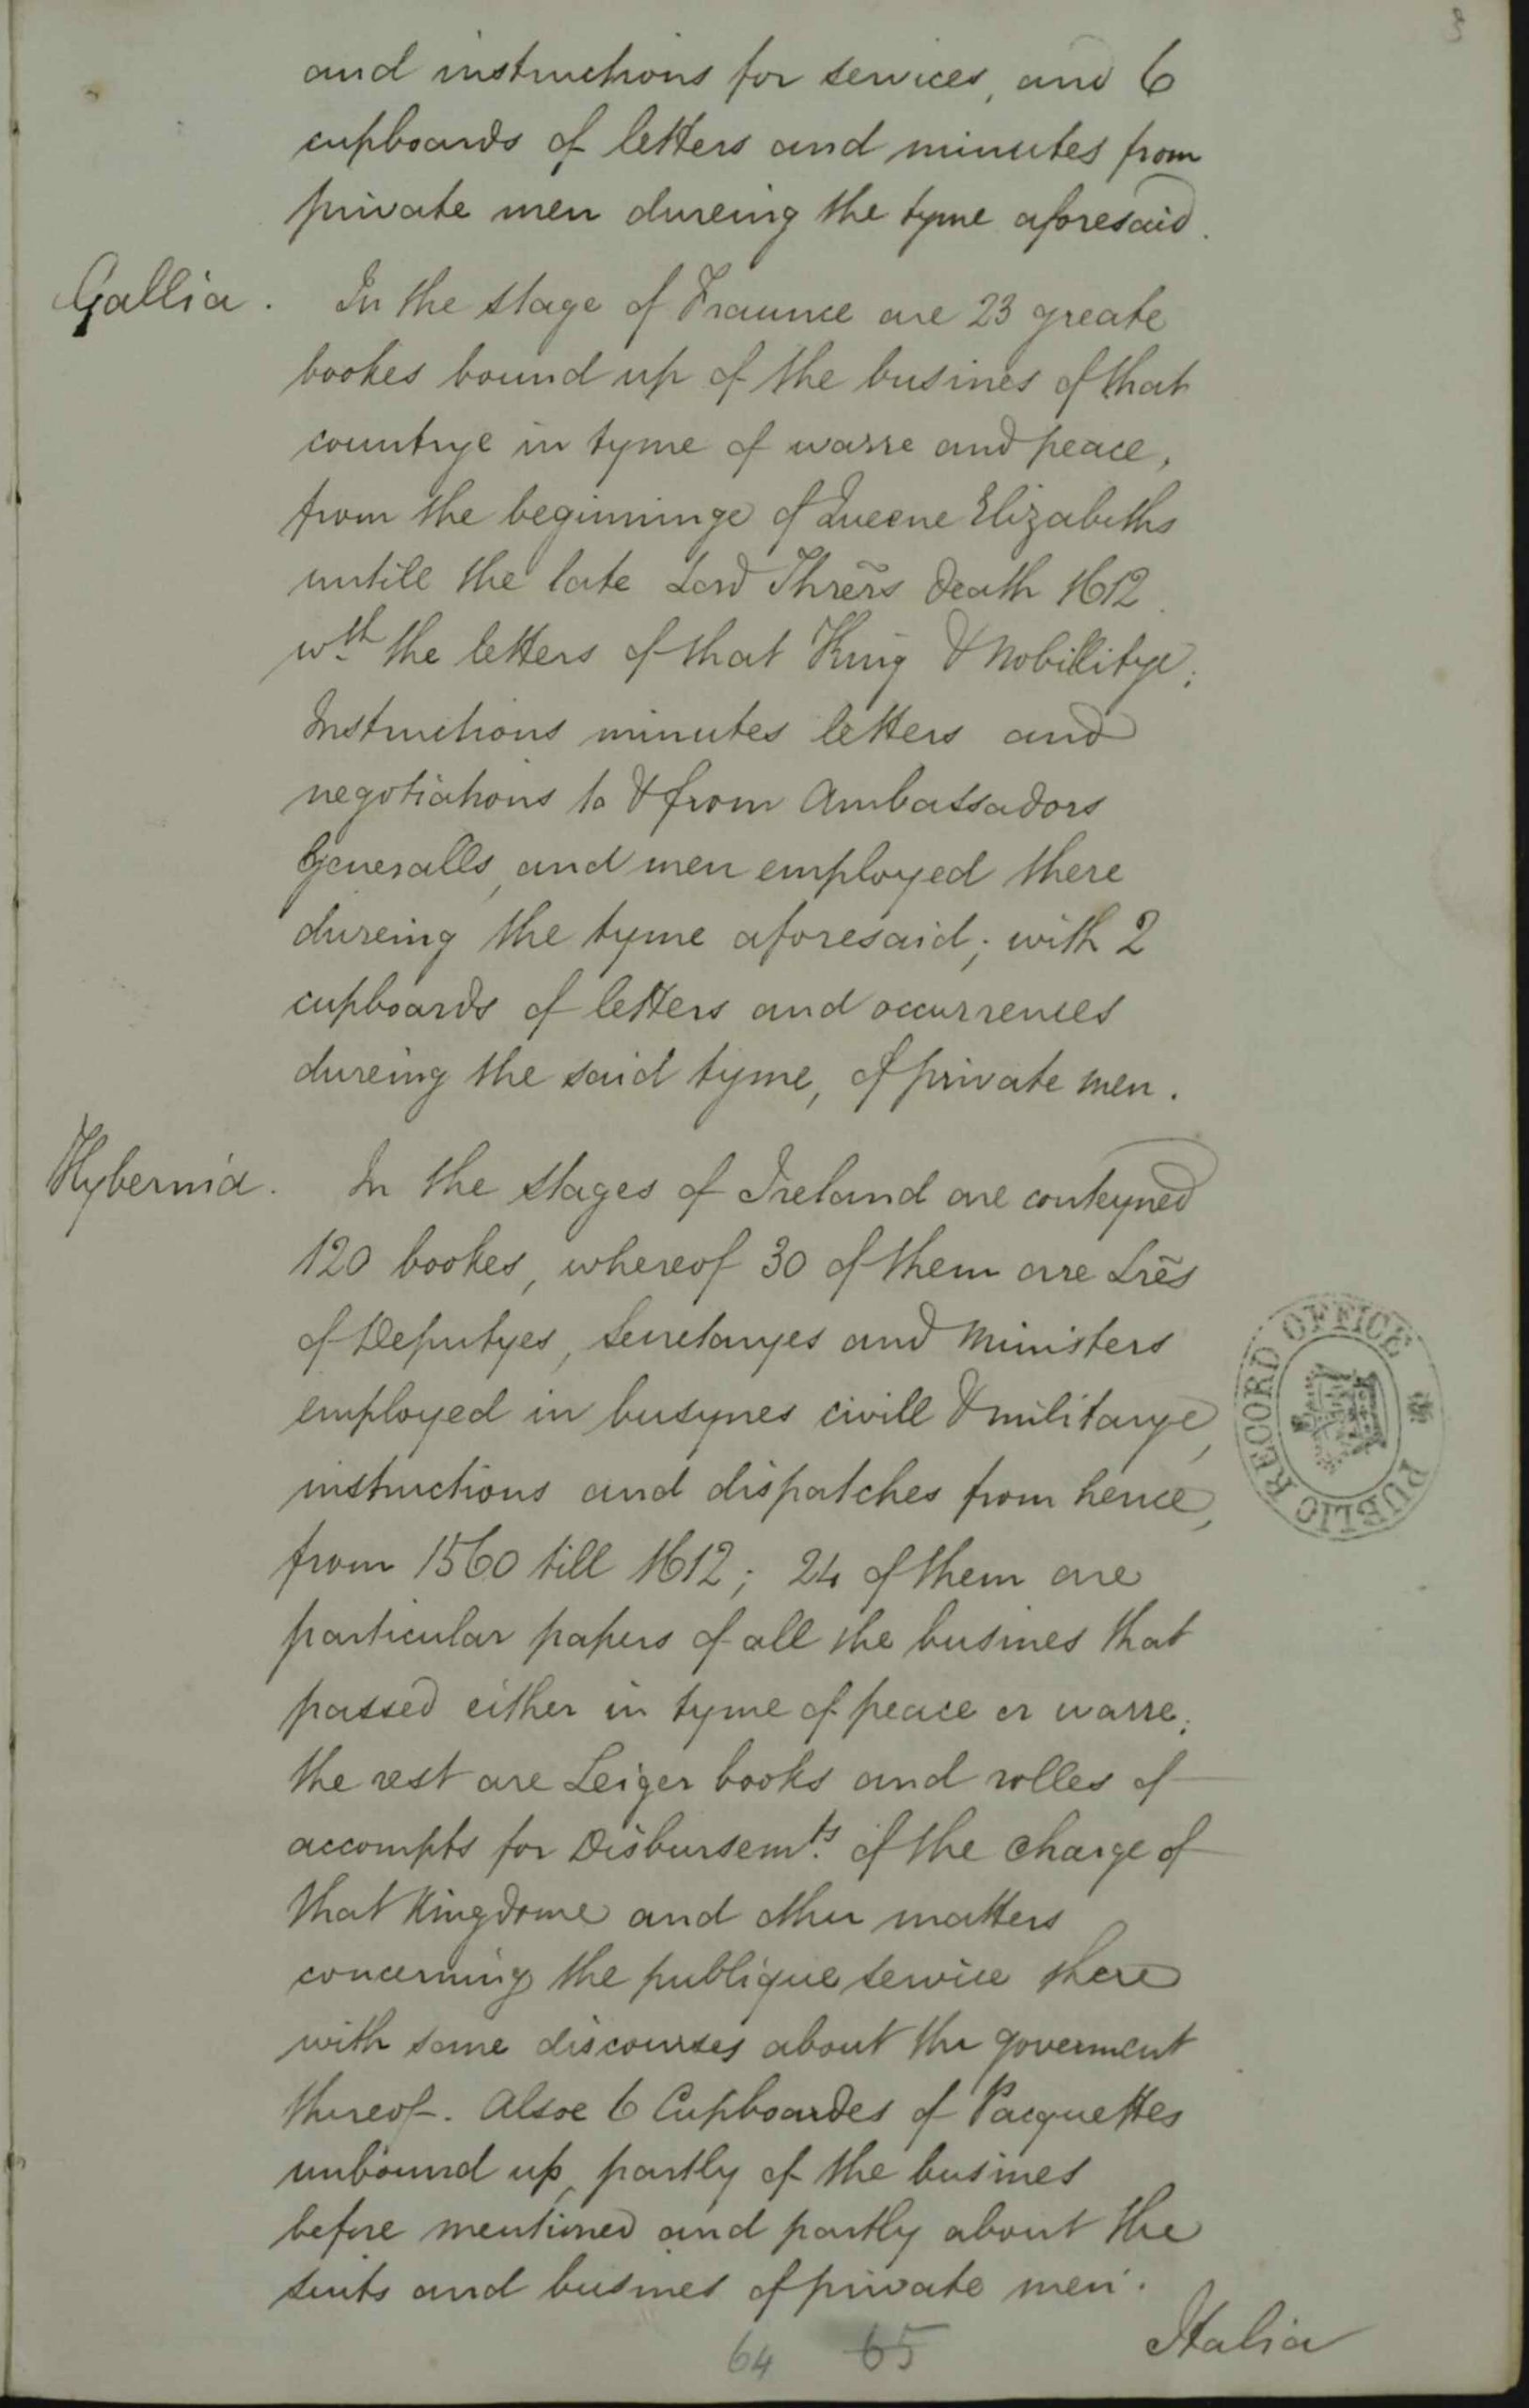 3
and instructions for services, and 6
cupboards of letters and minutes from
private men dureing the tyme aforesaid.
Gallia. In the stage of Fraunce are 23 greate
bookes bound up of the busines of that
countrye in tyme of warre and peace,
from the beginninge of Queene Elizabeths
untill the late Lord Thrẽrs death 1612.
wth the letters of that King & Nobilitye;
Instructions minutes letters and
negotiations to & from Ambassadors
Generalls, and men employed there
dureing the tyme aforesaid; with 2
cupboards of letters and occurrences
dureing the said tyme, of private men.
Hybernia. In the stages of Ireland are conteyned
120 bookes, whereof 30 of them are Lrẽs
of Deputyes, Secretaryes and Ministers
employed in busynes civill & militarye,
instructions and dispatches from hence,
from 1560 till 1612; 24 of them are
particular papers of all the busines that
passed either in tyme of peace or warre;
the rest are Leiger books and rolles of
accompts for Disbursemts. of the charge of
that Kingdome and other matters
concerning the publique service there
with some discourses about the goverment
thereof. Alsoe 6 Cupboardes of Pacquettes
unbound up, partly of the busines
before mentioned and partly about the
suits and busines of private men.
Italia
64 65
PUBLIC RECORD OFFICE